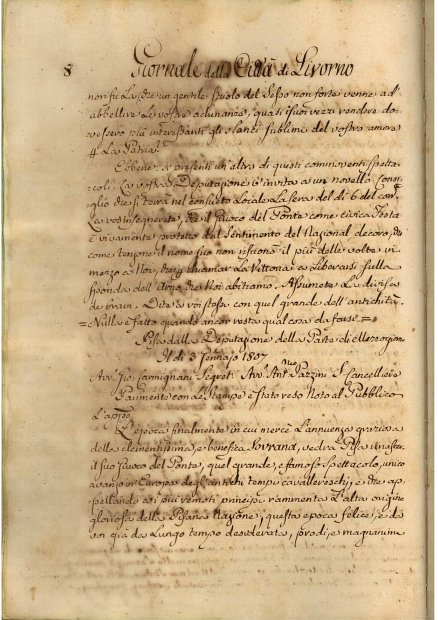 8 Giornale della Città di Livorno
non fu La, che un gentile stuolo del Sesso non forte venne ad
abbellire Le vostre adunanze, quasi i suoi vezzi rendere do
vessero più interessanti gli slanci sublimi del vostro amore
La Patria.
Ebbene: si presenti un'altro di questi commoventi spetta
coli. La vostra Deputazione v'invita a un novello Cons
iglio che si terrà nel consueto Locale La Sera del di 6 del cor.
La vos insegnerete, che il Giuoco del Ponte come civica Festa
è vivamente protetto dal Sentimento del Nazional decoro, che
come tempone il nome suo non risuonà il più delle volte in
mezzo a Noi, che chiamar La Vittoria a Librarsi sulla
sponda dell'Arno che Noi abitiamo. Assumete La divisa
de bravi. Dite a voi stessi con quel grande dell'antichità
=Nulla è fatto quando ancor resta qualcosa da farsi.=
Pisa dalla Deputazione della Parte di Mezzogiorno
Il dì 3 Gennajo 1807
Avv. Gio: Carmignani Segret. Avv. Ant. Pazzini S. Cancelliere
Parimente con Le Stampe è Stato reso Noto al Pubblico
L'appo
L'epoca finalmente in cui mercè L'annuenza graziosa
della clementissima, e benefica Sovrana, vedrà Pisa rinascer
il suo Giuoco del Ponte, quel grande, e famoso spettacolo, unico
avanzo in Europa degl'antichi tempi cavallereschi, e che ap
pellando ai più remoti principi rammenta L'alta origine
gloriosa della Pisana Nazione, questa epoca felice, e da
voi già da Lungo tempo desiderata, prodi, e magnanimi